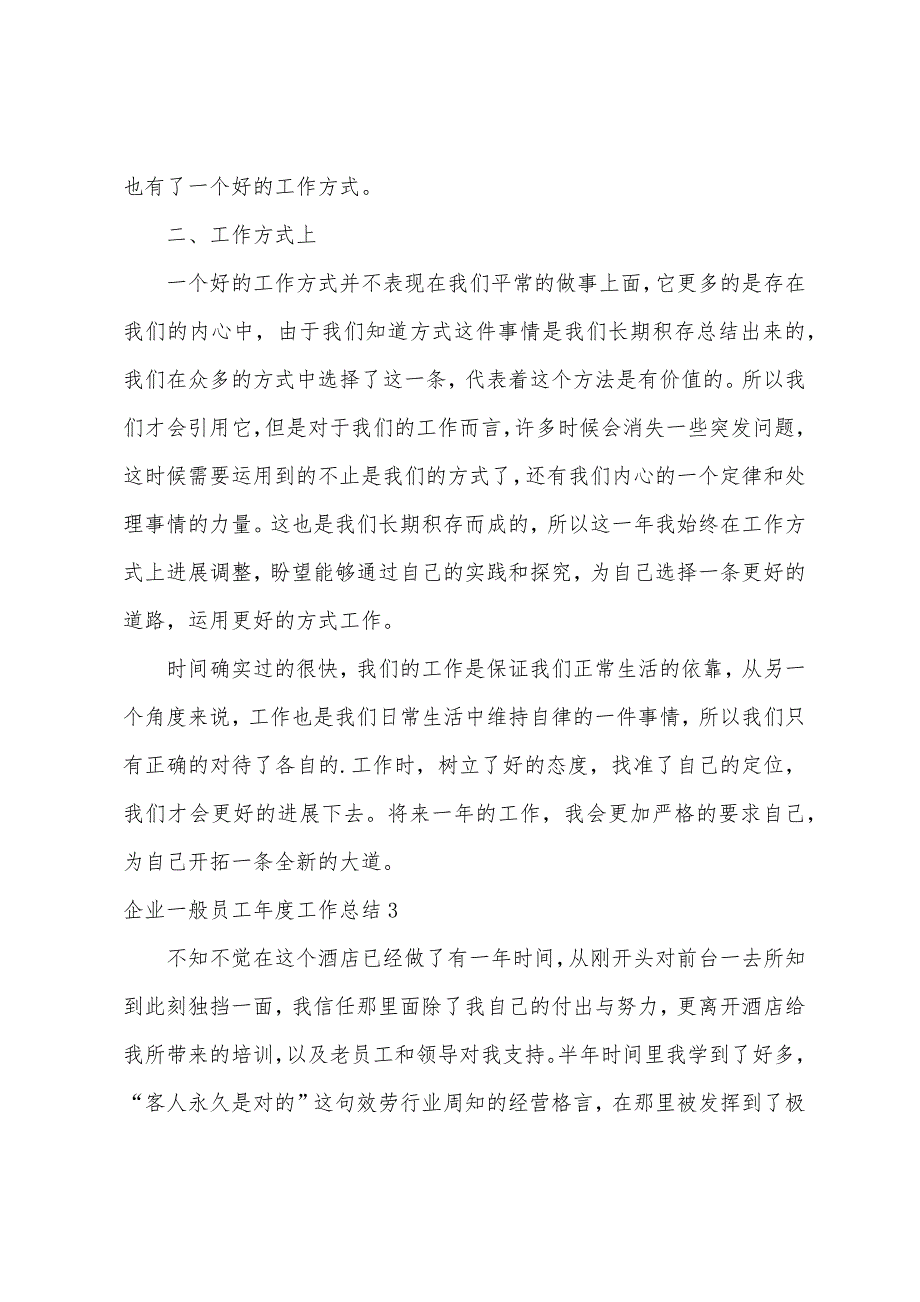 也有了一个好的工作方式。
二、工作方式上
一个好的工作方式并不表现在我们平常的做事上面，它更多的是存在
我们的内心中，由于我们知道方式这件事情是我们长期积存总结出来的，
我们在众多的方式中选择了这一条，代表着这个方法是有价值的。所以我
们才会引用它，但是对于我们的工作而言，许多时候会消失一些突发问题，
这时候需要运用到的不止是我们的方式了，还有我们内心的一个定律和处
理事情的力量。这也是我们长期积存而成的，所以这一年我始终在工作方
式上进展调整，盼望能够通过自己的实践和探究，为自己选择一条更好的
道路，运用更好的方式工作。
时间确实过的很快，我们的工作是保证我们正常生活的依靠，从另一
个角度来说，工作也是我们日常生活中维持自律的一件事情，所以我们只
有正确的对待了各自的.工作时，树立了好的态度，找准了自己的定位，
我们才会更好的进展下去。将来一年的工作，我会更加严格的要求自己，
为自己开拓一条全新的大道。
企业一般员工年度工作总结3
不知不觉在这个酒店已经做了有一年时间，从刚开头对前台一去所知
到此刻独挡一面，我信任那里面除了我自己的付出与努力，更离开酒店给
我所带来的培训，以及老员工和领导对我支持。半年时间里我学到了好多，
“客人永久是对的”这句效劳行业周知的经营格言，在那里被发挥到了极